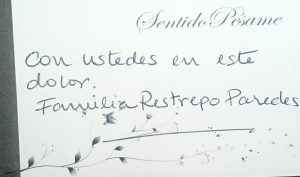 Sentido Pésame
Con ustedes en este
dolor.
Familia Restrepo Paredes